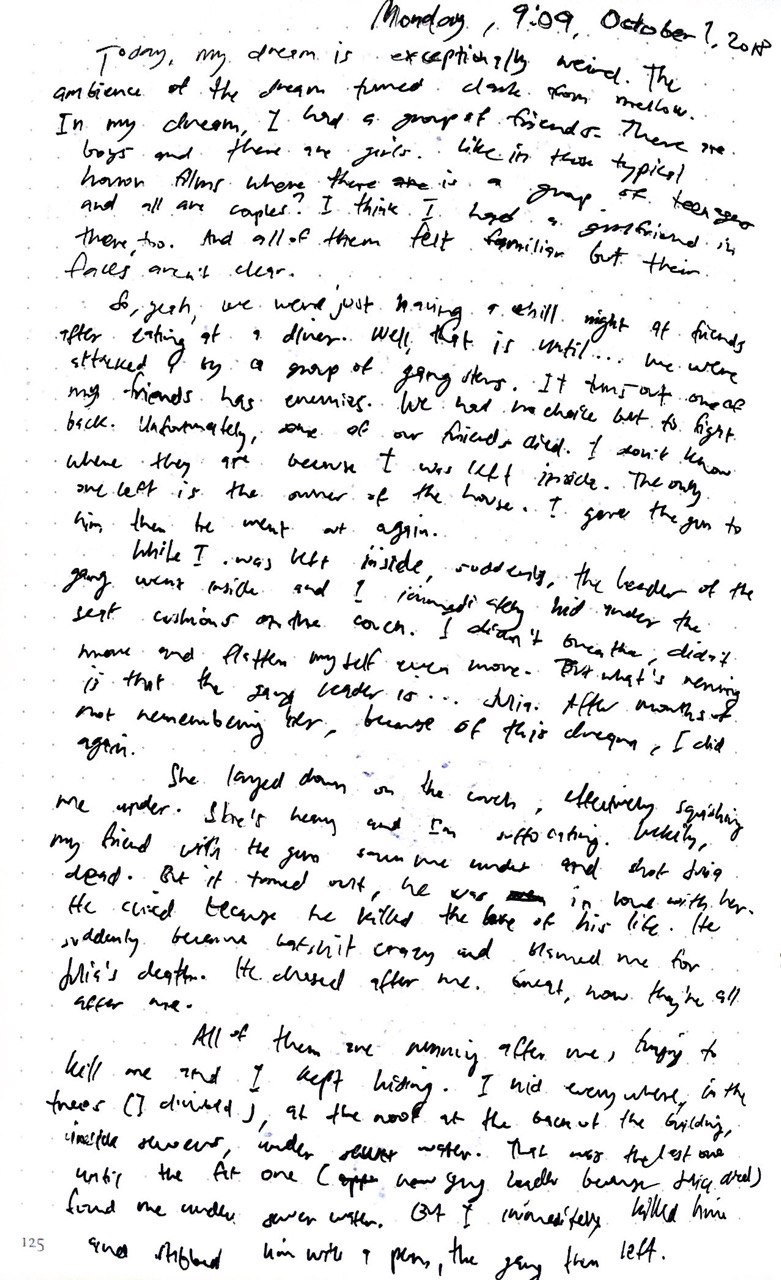 Monday, 9:09, October 1, 2018
Today, my dream is exceptionally weird. The
ambience of the dream turned dark from mellow.
In my dream, I had a group of friends. There are
boys and there are girls. Like in those typical
horror films where there are is a group of teenagers
and all are couples? I think I had a girlfriend in
there, too. And all of them felt familiar but their
faces aren't clear.
So, yeah, we were just having a chill night at friends
after eating at a diner. Well, that is until... we were
attacked by a group of gangsters. It turns out one of
my friends has enemies. We had no choice but to fight
back. Unfortunately, some of our friends died. I don't know
where they are because I was left inside. The only
one left is the owner of the house. I gave the gun to
him then he went out again.
While I was left inside, suddenly, the leader of the
gang went inside and I immediately hid under the
seat cushions on the couch. I didn't breathe, didn't
move and flatten myself even more. But what's
is that the gang leader is... Julia. After months of
not remembering her, because of this dream, I did
again.
She layed down on the couch, effectively squishing
me under. She's heavy and I'm suffocating. Luckily,
my friend with the gun saw me under and shot Julia
dead. But it turned out, he was in love with her.
He cried because he killed the love of his life. He
suddenly became batshit crazy and blamed me for
Julia's death. He chased after me. Great, now they're all
after me.
All of them are running after me, trying to
kill me and I kept hiding. I hid everywhere, in the
trees (I climbed), at the roof at the back of the building,
inside sewers, under sewer water. That was the last one
until the fat one (new gang leader because Julia died)
found me under sewer water. But I immediately killed him
and stabbed him with a pen, the gang then left.
125